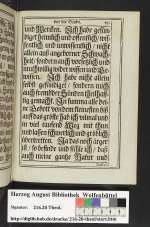 von der Buße.
und Wercken. Ich habe gesün-
diget heimlich und öffentlich, wis-
sentlich und unwissentlich, nicht
allein aus angebohrner Schwach-
heit, sondern auch vorsetzlich und
muthwillig wider wissen und Ge-
wissen. Ich habe nicht allein
selbst gesündiget, sondern mich
auch frembder Sünden theilhaff-
tig gemacht. In summa alle dei-
ne Gebott von dem kleinesten biß
auff das größte hab ich vielmal und
in viel tausend Weg mit thun
und lassen schwerlich und gröblich
übertretten. Ja das noch ärger
ist, so befinde und fühle ich, daß
auch meine gantze Natur und
Herzog August Bibliothek Wolfenbüttel
Signatur: 216.26 Theol.
http://diglib.hab.de/drucke/216-26-theol/start.htm